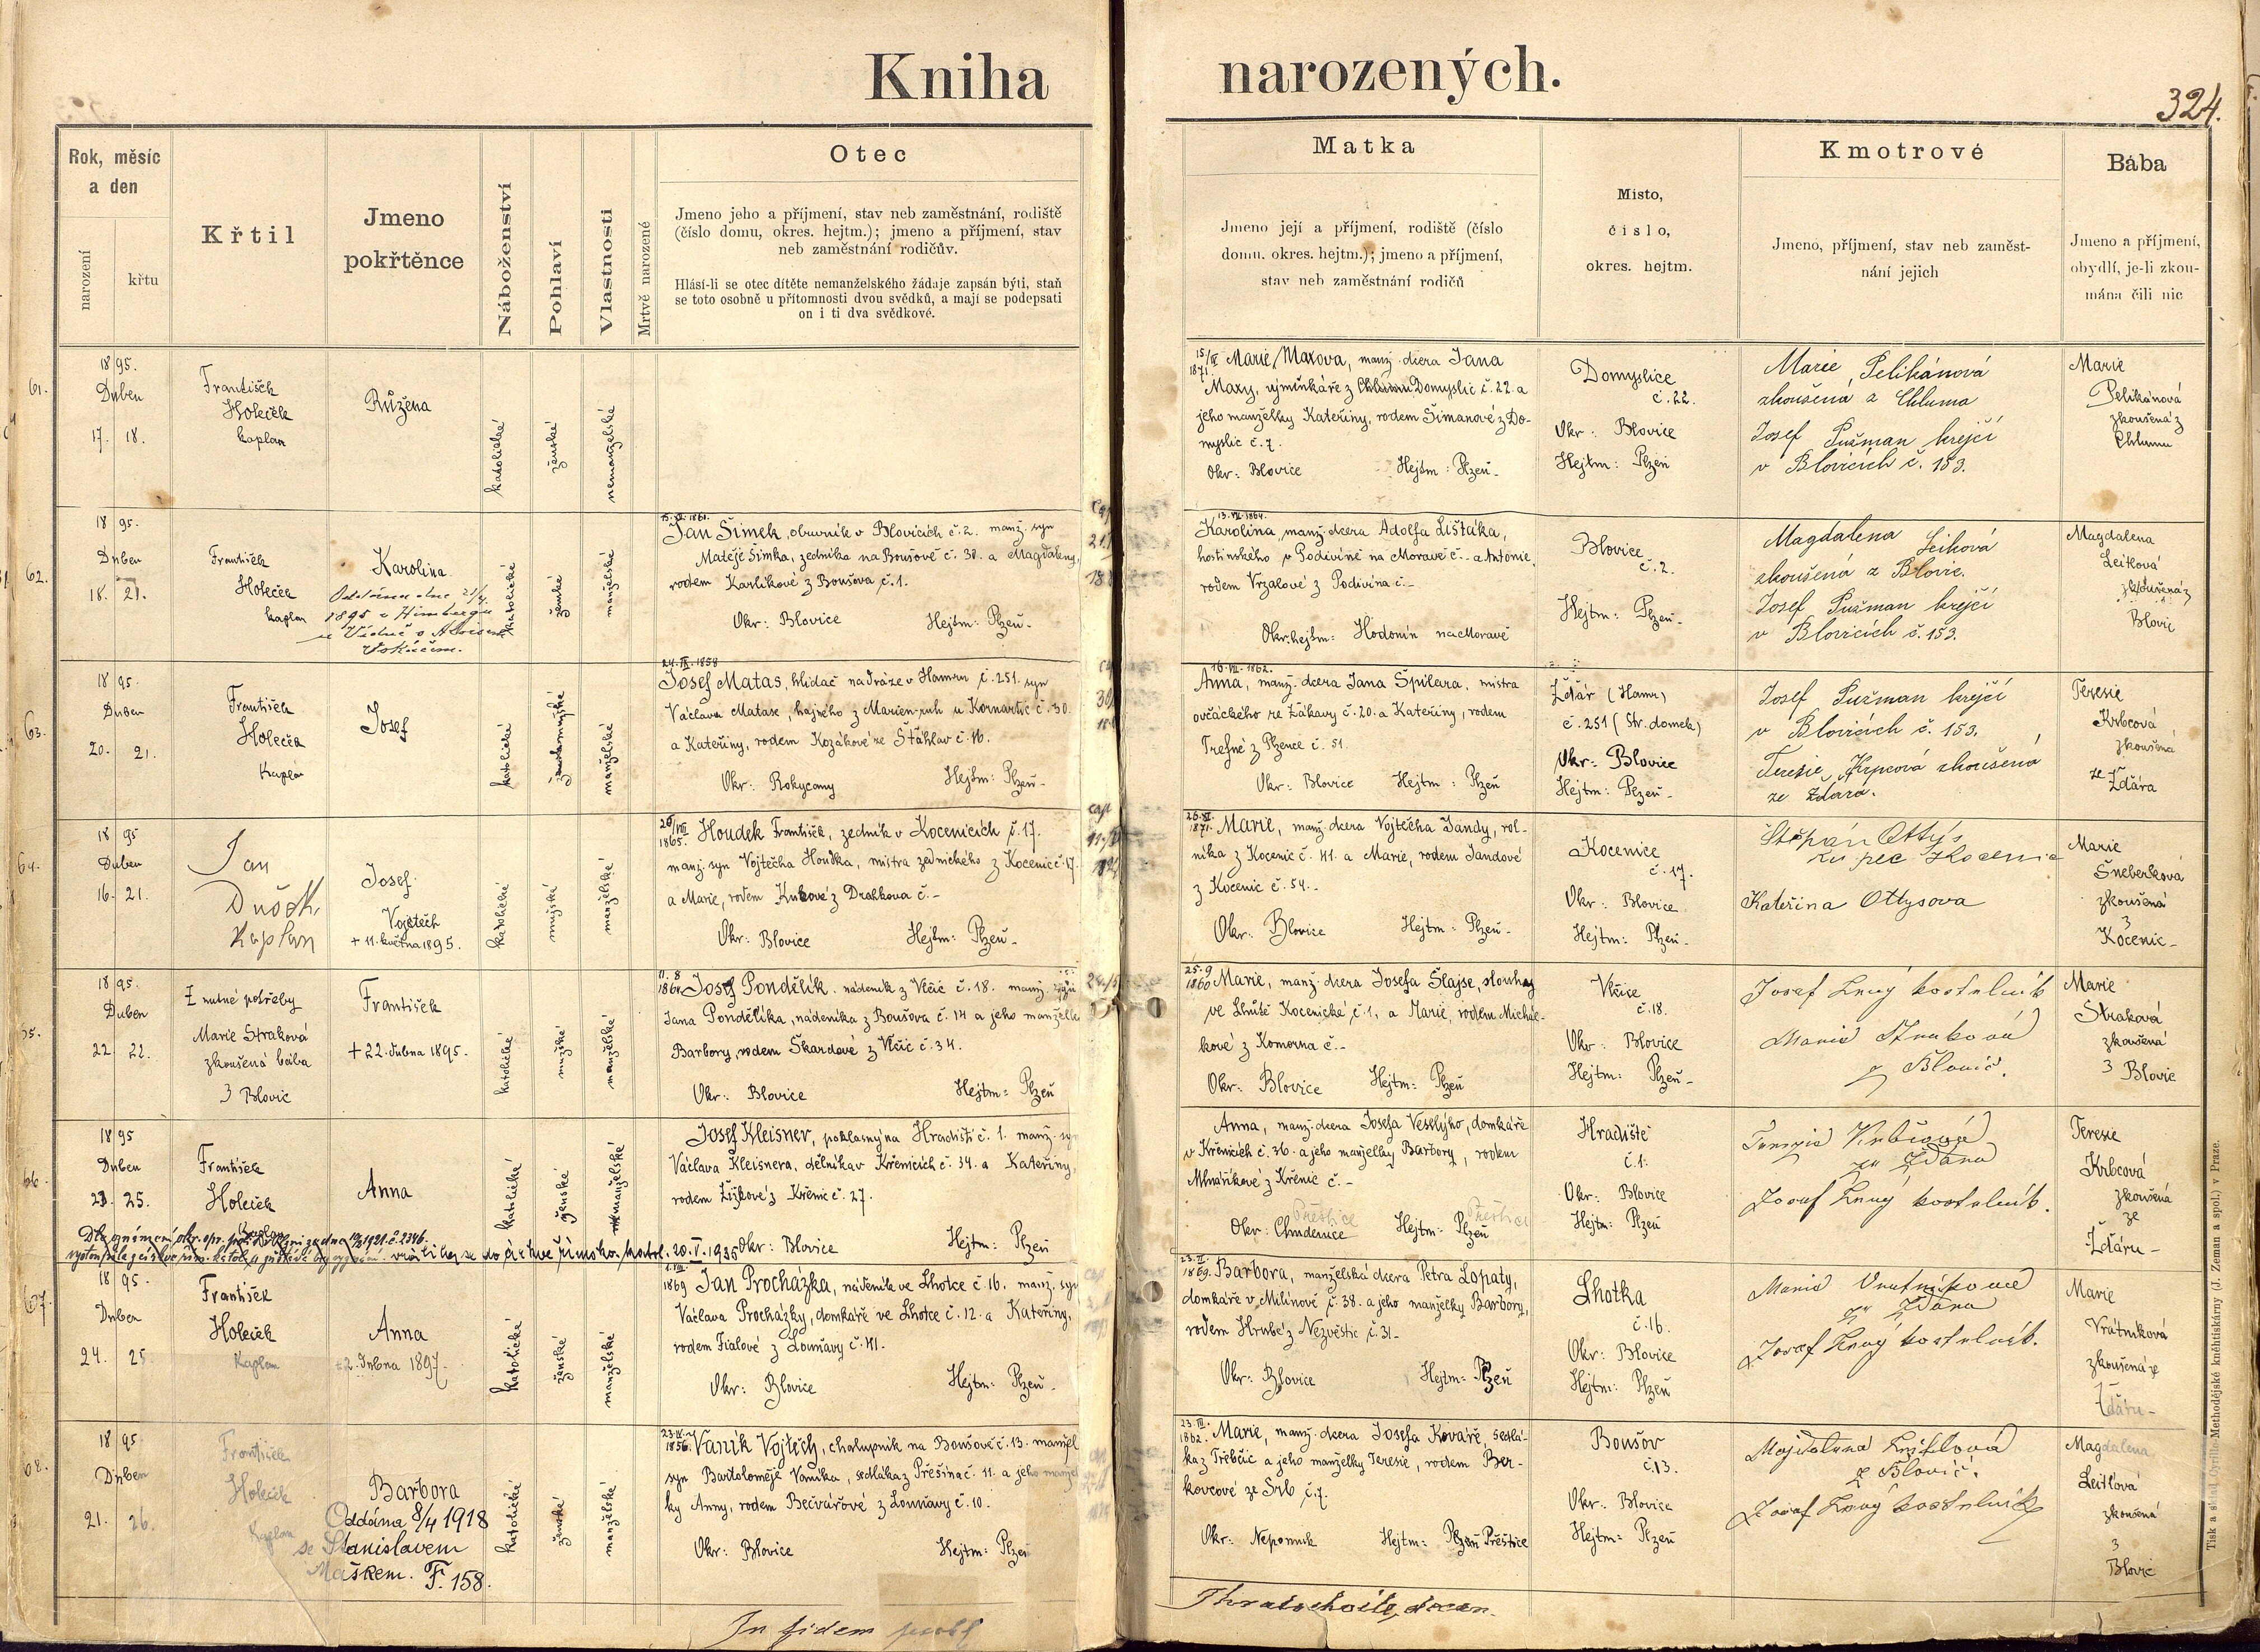 Kniha narozených.
324.
Rok, měsíc
a den
narození
křtu
Křtil
Jmeno
pokřtěnce
Náboženství
Pohlaví
Vlastnosti
Mrtvě narozené
Otec
Jmeno jeho a příjmení, stav neb zaměstnání, rodiště
(číslo domu, okres. hejtm.); jmeno a příjmení, stav
neb zaměstnání rodičův.
Hlásí-li se otec dítěte nemanželského žádaje zapsán býti, staň
se toto osobně u přítomnosti dvou svědků, a mají se podepsati
on i ti dva svědkové.
Matka
Jmeno její a příjmení, rodiště (číslo
domu. okres. hejtm.); jmeno a příjmení,
stav neb zaměstnání rodičů
Místo,
číslo,
okres. hejtm.
Kmotrové
Jmeno, příjmení, stav neb zaměst-
nání jejich
Bába
Jmeno a příjmení,
obydlí, je-li zkou-
mána čili nic
61.
18 95.
Duben
17. 18.
František
Holeček
kaplan
Růžena
katolické
ženské
nemanželské
15/IV 1871. Marie Maxova, manž. dcera Jana
Maxy, výminkáře z Domyslic č. 22. a
jeho manželky Kateřiny, rodem Šimanové z Do-
myslic č. 7.
Okr: Blovice Hejtm: Plzeň-
Domyslice
č. 22.
Okr: Blovice
Hejtm: Plzeň
Marie Pelikánová
zkoušená z Chluma
Josef Pužman krejčí
v Blovicích č. 153.
Marie
Pelikánová
zkoušená z
Chlumu
62.
18 95.
Duben
18. 21.
František
Holeček
kaplan
Karolina
katolické
ženské
manželské
Jan Šimek, obuvník v Blovicích č. 2. manž. syn
Matěje Šimka, zedníka na Boušově č. 30. a Magdaleny,
rodem Karlíkové z Boušova č. 1.
Okr: Blovice Hejtm: Plzeň-
13. VII. 1864.
Karolina, manž. dcera Adolfa Lišťáka,
hostinského v Podivíně na Moravě č.- a Antonie,
rodem Vrzalové z Podivína č.-
Okr. hejtm: Hodonín na Moravě
Blovice
č. 2.
Hejtm: Plzeň-
Magdalena Leitlová
zkoušená z Blovic.
Josef Pužman krejčí
v Blovicích č. 153.
Magdalena
Leitlová
zkoušená z
Blovic
63.
18 95.
Duben
20. 21.
František
Holeček
Kaplan
Josef
katolické
manželské
24. IX. 1858
Josef Matas, hlídač na dráze v Hamru č. 251. syn
Václava Matase, hajného z Marien-ruh u Kornatic č. 30
a Kateřiny, rodem Kozákové ze Štáhlav č. 16.
Okr: Rokycany Hejtm: Plzeň-
16. VII. 1862.
Anna, manž. dcera Jana Špilara, mistra
ovčáckého ze Žákavy č. 20. a Kateřiny, rodem
Trefné z Plzence č. 51.
Okr: Blovice Hejtm: Plzeň
Žďár (Hamr)
č. 251 (Str. domek)
Okr: Blovice
Hejtm: Plzeň-
Josef Pužman krejčí
v Blovicích č. 153.
Terezie Krpcová zkoušená
ze Žďára.
Terezie
Krbcová
zkoušená
ze Žďára
64.
18 95
Duben
16. 21.
Jan
Dušek
Kaplan
Josef
Vojtěch
+ 11. května 1895.
katolické
mužské
manželské
26/VIII 1865. Houdek František, zedník v Kocenicích č. 17.
manž. syn Vojtěcha Houdka, mistra zednického z Kocenic č. 17.
a Marie, rodem Kubové z Drahkova č.-
Okr: Blovice Hejtm: Plzeň-
26. XI. 1871. Marie, manž. dcera Vojtěcha Jandy, rol-
níka z Kocenic č. 41. a Marie, rodem Jandové
z Kocenic č. 54.-
Okr: Blovice Hejtm: Plzeň-
Kocenice
č. 17.
Okr: Blovice
Hejtm: Plzeň-
Štěpán Ottys
kupec z Kocenic
Kateřina Ottysova
Marie
Šneberková
zkoušená
z
Kocenic-
65.
18 95.
Duben
22. 22.
Z nutné potřeby
Marie Straková
zkoušená bába
z Blovic
František
+ 22. dubna 1895.
katolické
mužské
manželské
11. 8 1861. Josef Pondělík, nádeník z Vlčic č. 18. manž. syn
Jana Pondělíka, nádeníka z Boušova č. 14 a jeho manželky
Barbory, rodem Škardové z Vlčic č. 34.
Okr: Blovice Hejtm: Plzeň
25. 9 1860 Marie, manž. dcera Josefa Šlajse, slouhy
ve Lhůtě Kocenické č. 1, a Marie, rodem Michál-
kové z Komorna č.-
Okr: Blovice Hejtm: Plzeň
Vlčice
č. 18.
Okr: Blovice
Hejtm: Plzeň-
Josef Lený kostelník
Marie Straková
z Blovic.
Marie
Straková
zkoušená
z Blovic
66.
18 95
Duben
23. 25.
František
Holeček
Anna
katolické
ženské
manželské
Josef Kleisner, poklasný na Hradišti č. 1. manž. syn
Václava Kleisnera, dělníka v Křenicích č. 34. a Kateřiny,
rodem Žižkové z Křenic č. 27.
Okr: Blovice Hejtm: Plzeň
vrátila se do církve římsko-katol. 20. V. 1935
Anna, manž. dcera Josefa Veselýho, domkáře
v Křenicích č. 36. a jeho manželky Barbory, rodem
Mlnaříkové z Křenic č.-
Přeštice Přeštice
Okr: Chudenice Hejtm: Plzeň
Hradiště
č. 1.
Okr: Blovice
Hejtm: Plzeň
Terezie Krbcová
ze Žďára
Josef Lený kostelník.
Terezie
Krbcová
zkoušená
ze
Žďáru-
67.
18 95.
Duben
24. 25.
František
Holeček
Kaplan
Anna
+ 2. dubna 1897.
katolické
ženské
manželské
1869 Jan Procházka, nádeník ve Lhotce č. 16. manž. syn
Václava Procházky, domkáře ve Lhotce č. 12. a Kateřiny,
rodem Fialové z Louňavy č. 41.
Okr: Blovice Hejtm: Plzeň-
23. II. 1869. Barbora, manželská dcera Petra Lopaty,
domkáře v Milínově č. 38. a jeho manželky Barbory,
rodem Hrubé z Nezvěstic č. 31.-
Okr: Blovice Hejtm: Plzeň
Lhotka
č. 16.
Okr: Blovice
Hejtm: Plzeň
Marie Vratníková
ze Žďára
Josef Lený kostelník.
Marie
Vrátníková
zkoušená ze
Žďáru-
68.
18 95
Duben
21. 26.
František
Holeček
Kaplan
Barbora
Oddána 8/4 1918
se Stanislavem
Maškem. F. 158.
katolické
ženské
manželské
23. IV. 1856. Vaník Vojtěch, chalupník na Boušově č. 13. manžel
syn Bartoloměje Vaníka, sedláka z Přešína č. 11. a jeho manžel
ky Anny, rodem Bečvářové z Louňavy č. 10.
Okr: Blovice Hejtm: Plzeň
23. III. 1862. Marie, manž. dcera Josefa Kováře, sedlá-
ka z Třebčic a jeho manželky Terezie, rodem Ber-
kovcové ze Srb č. 7.
Okr: Nepomuk Hejtm: Plzeň Přeštice
Boušov
č. 13.
Okr: Blovice
Hejtm: Plzeň
Magdalena Leitlová
z Blovic.
Josef Lený kostelník
Magdalena
Leitlová
zkoušená
z
Blovic
In fidem
Tisk a sklad Cyrillo-Methodějské kněhtiskárny (J. Zeman a spol.) v Praze.